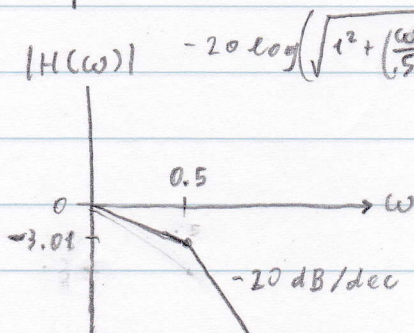 |H(ω)| -20 log(√1² + (ω/.5
0.5
0
ω
-3.01
-20 dB/dec